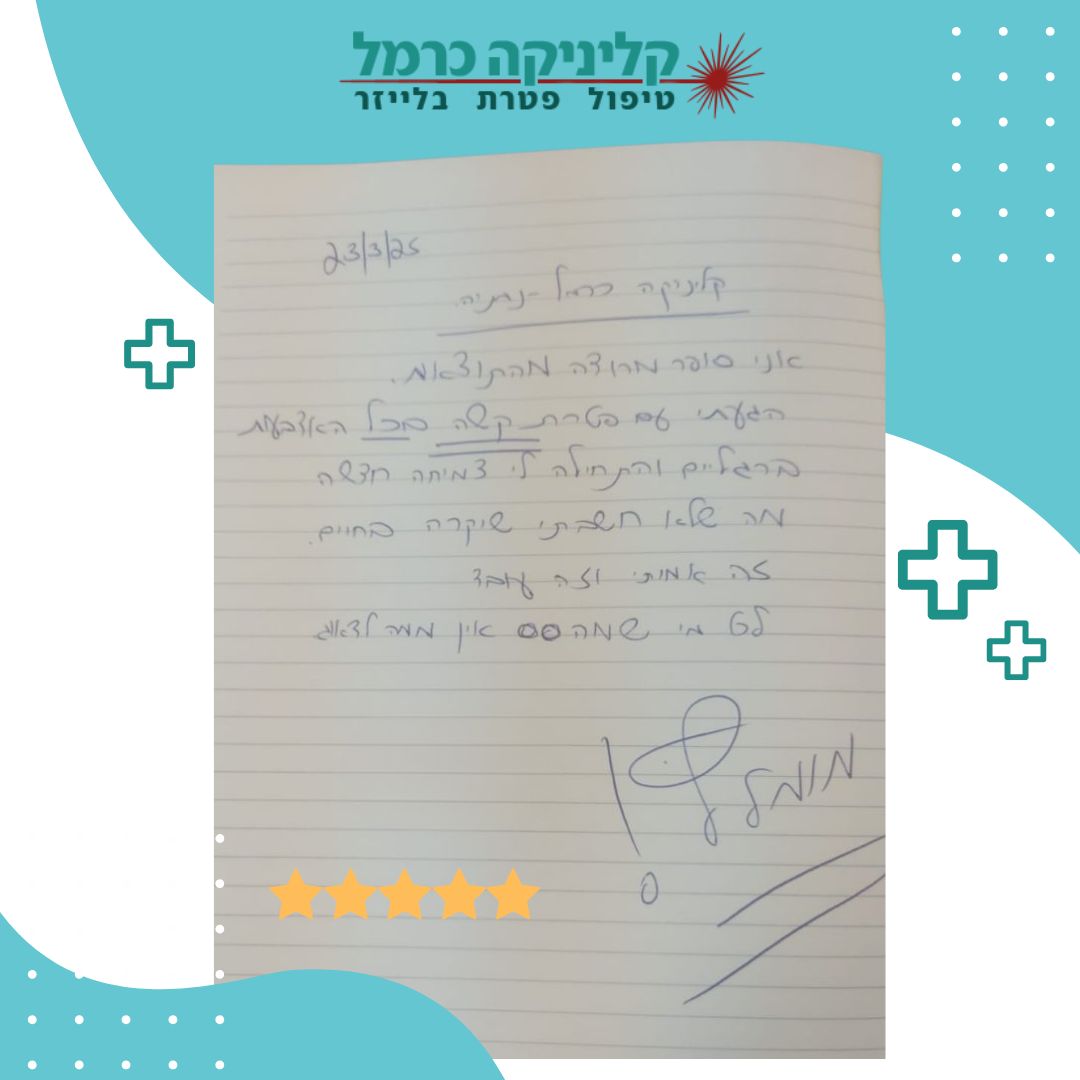 קליניקה כרמל
טיפול פטרת בלייזר
23/3/25
קליניקה כרמל - נתניה.
אני סופר מרוצה מהתוצאות.
הגעתי עם פטרת קשה בכל האצבעות
ברגליים והתחילה לי צמיחה חדשה
מה שלא חשבתי שיקרה בחיים.
זה אמיתי וזה עובד
לכל מי שמהסס אין ממה לדאוג
מומלץ!